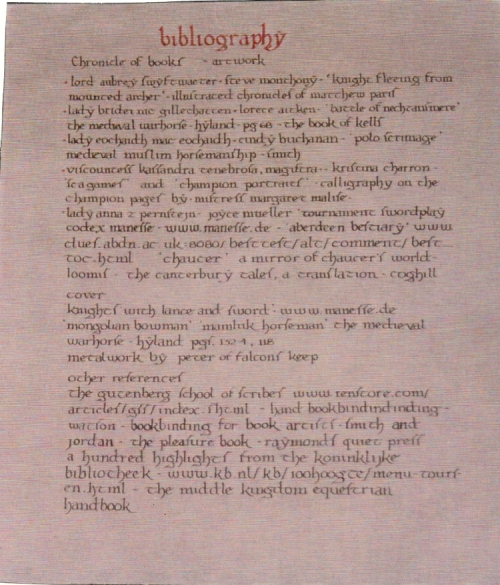 bibliography
Chronicle of books - artwork
· lord aubrey swyftwater - steve monchony - 'knight fleeing from
mounted archer' - illustrated chronicles of matthew paris
· lady brider nic gillechatten - lorece aitken - 'battle of nechtansmere'
the medieval warhorse - hyland - pg 68 - the book of kells
· lady eochaidh mac eochaidh - cindy buchanan - 'polo scrimage'
medieval muslim horsemanship - smith
· viscountess kassandra tenebrosa, magistra - kristina charron -
'sea games' and 'champion portraits' - calligraphy on the
champion pages by - mistress margaret malise -
· lady anna z pernstejn - joyce mueller 'tournament swordplay
codex manesse - www.manesse.de - 'aberdeen bestiary' www
clues.abdn.ac.uk:8080/besttest/alt/comment/best_
toc.html 'chaucer' a mirror of chaucer's world -
loomis - the canterbury tales, a translation - coghill
cover
knights with lance and sword - www.manesse.de
'mongolian bowman' 'mamluk horseman' the medieval
warhorse - hyland pgs. 132-4, 118
metalwork by peter of falcons keep
other references
the gutenberg school of scribes www.renstore.com/
articles/gss/index.shtml - hand bookbindindinding -
watson - bookbinding for book artists - smith and
jordan - the pleasure book - raymonds quiet press
a hundred highlights from the koninklijke
bibliotheek - www.kb.nl/kb/100hoogte/menu-tours-
en.html - the middle kingdom equestrian
handbook